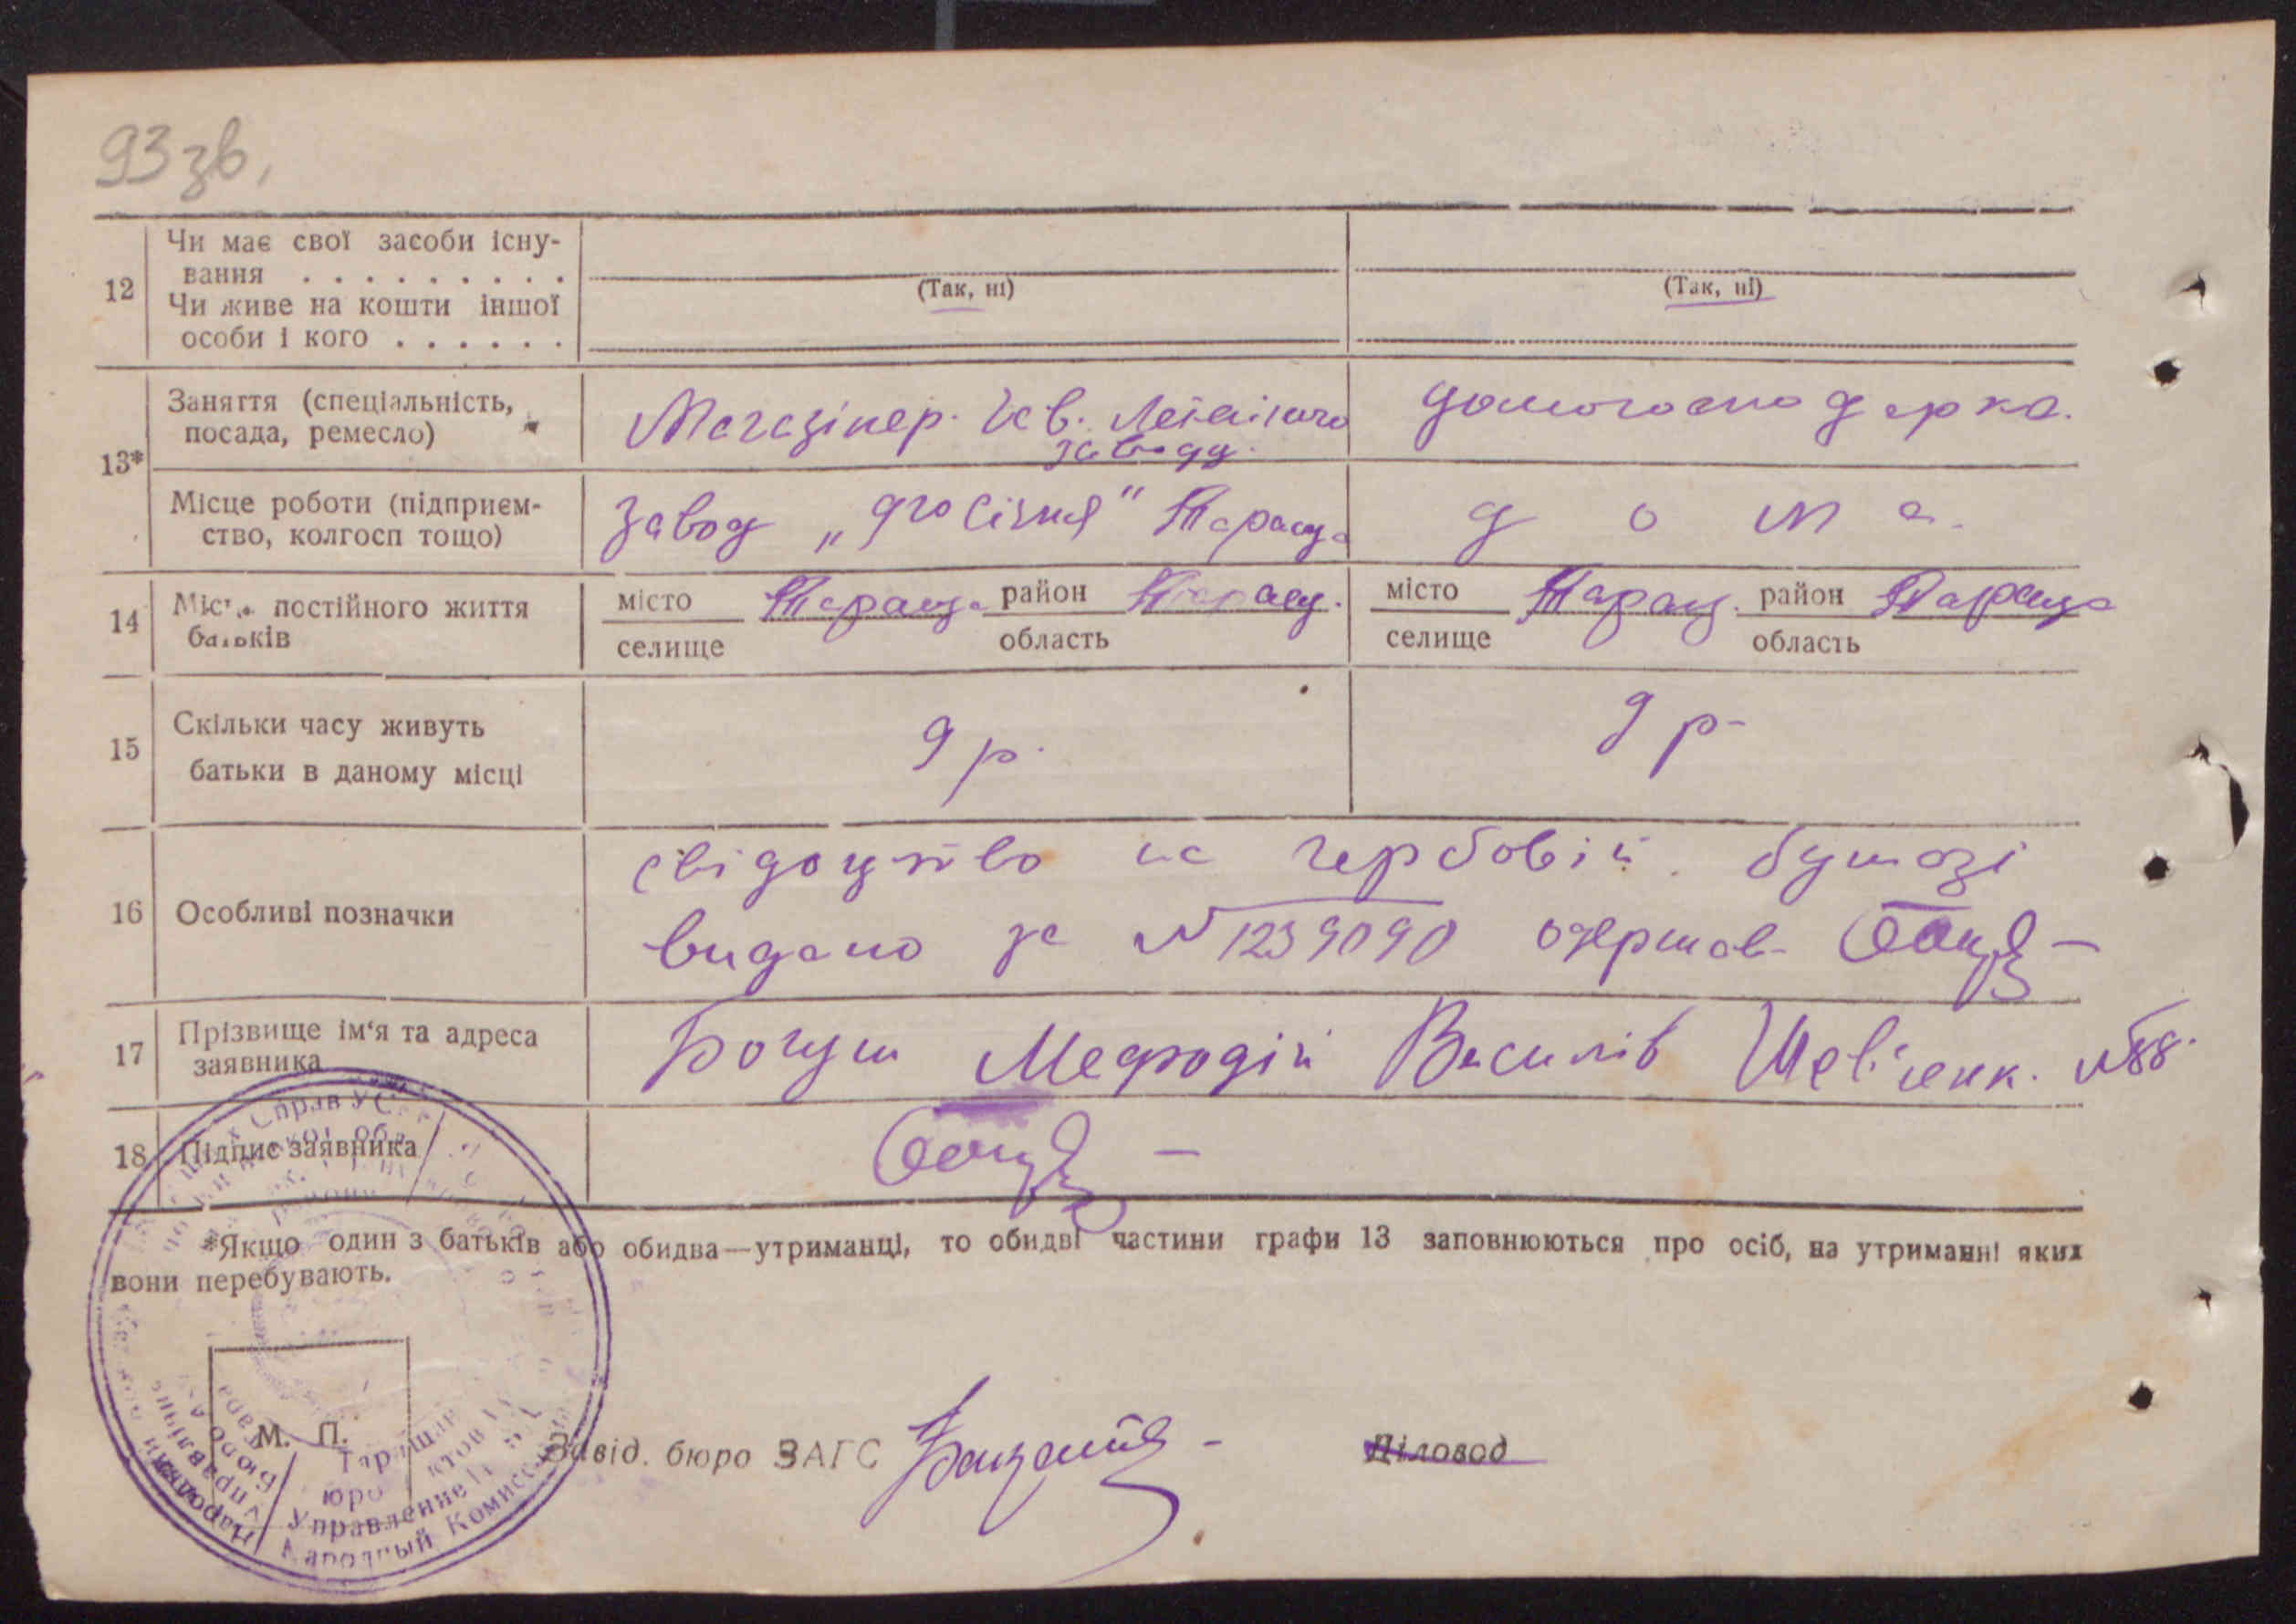 93 зв,
12 Чи має свої засоби існу-
вання . . . . . . . . . .
(Так, ні) (Так, ні)
Чи живе на кошти іншої
особи і кого . . . . . .
13* Заняття (спеціальність,
посада, ремесло)
Магазінер. домогосподарка.
заводу.
Місце роботи (підприєм-
ство, колгосп тощо)
Завод Тараща д о м а.
14 постійного життя
батьків
місто Тараща район Таращ. місто Таращ. район Тараща
селище область селище область
15 Скільки часу живуть
батьки в даному місці
9 р. 9 р-
16 Особливі позначки
свідоцтво на гербовій бумазі
видано за № 1239090 одержав-
17 Прізвище ім'я та адреса
заявника
Богуш Мефодій Василів Шевченк. №88.
18 Підпис заявника
*Якщо один з батьків або обидва—утриманці, то обидві частини графи 13 заповнюються про осіб, на утриманні яких
вони перебувають.
М. П.
Завід. бюро ЗАГС
Діловод
Управление
Народный Комисс